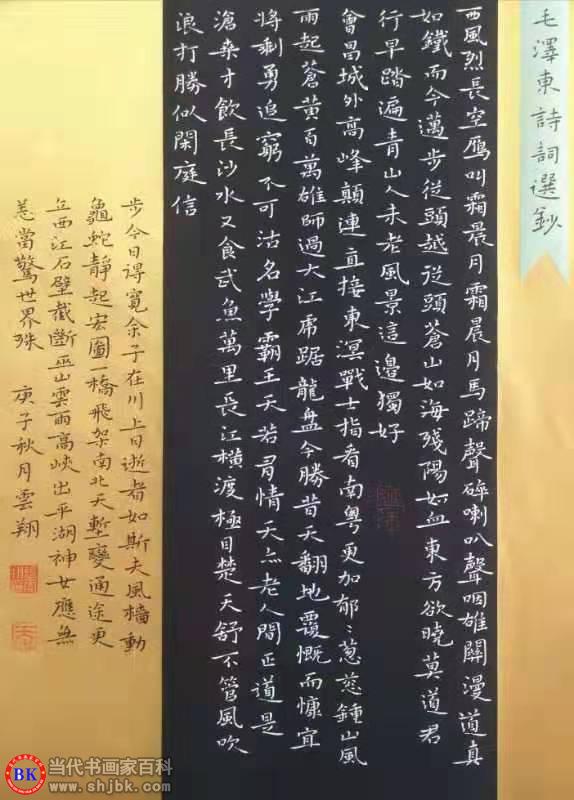 毛澤東詩詞選鈔
西風烈長空鴈叫霜晨月霜晨月馬蹄聲碎喇叭聲咽雄關漫道真
如鐵而今邁步從頭越從頭蒼山如海殘陽如血東方欲曉莫道君
行早踏遍青山人未老風景這邊獨好
會昌城外高峰顛連直接東溟戰士指看南粵更加郁〻蔥蔥鍾山風
雨起蒼黃百萬雄師過大江虎踞龍盤今勝昔天翻地覆慨而慷宜
將剩勇追窮不可沽名學霸王天若有情天亦老人間正道是
滄桑才飲長沙水又食武魚萬里長江橫渡極目楚天舒不管風吹
浪打勝似閑庭信
步今日得寬余子在川上曰逝者如斯夫風檣動
龜蛇靜起宏圖一橋飛架南北天塹變通途更
立西江石壁截斷巫山雲雨高峽出平湖神女應無
恙當驚世界殊 庚子秋月雲翔
BK 当代书画家百科
www.shjbk.com